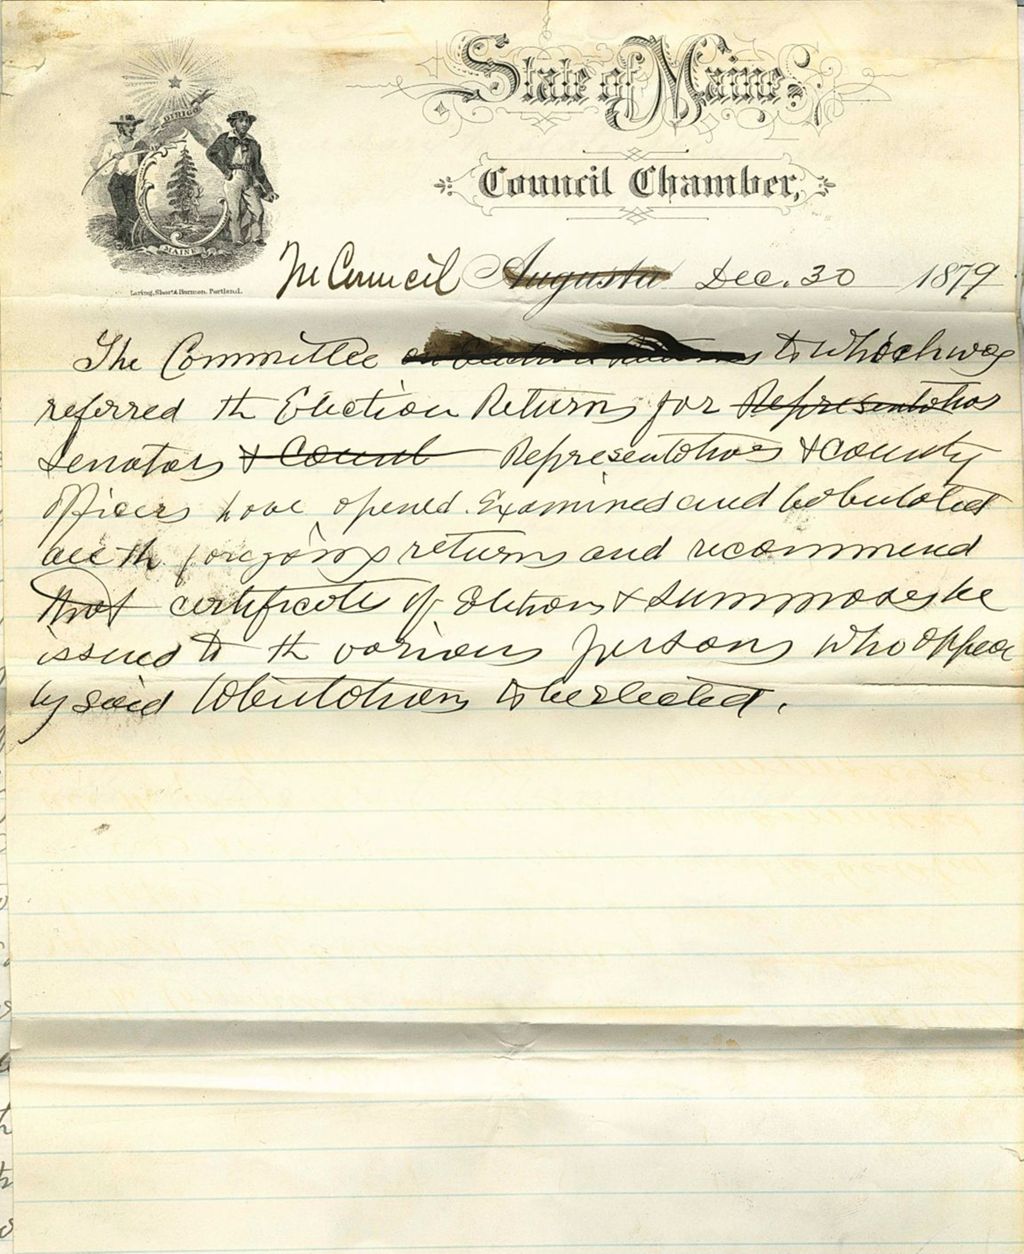 State of Maine
Council Chamber,
DIRIGO
MAINE
Loring, Short & Harmon. Portland.
In Council Augusta Dec. 30 1879
The Committee on Election Returns to which was
referred th Election Returns for Representatives
Senators & Count Representatives & county
officers have opened Examined and tabulated
all th foregoing returns and recommend
that certificates of Elections & summonses be
issued to th various persons who appear
by said tabulations to be elected.